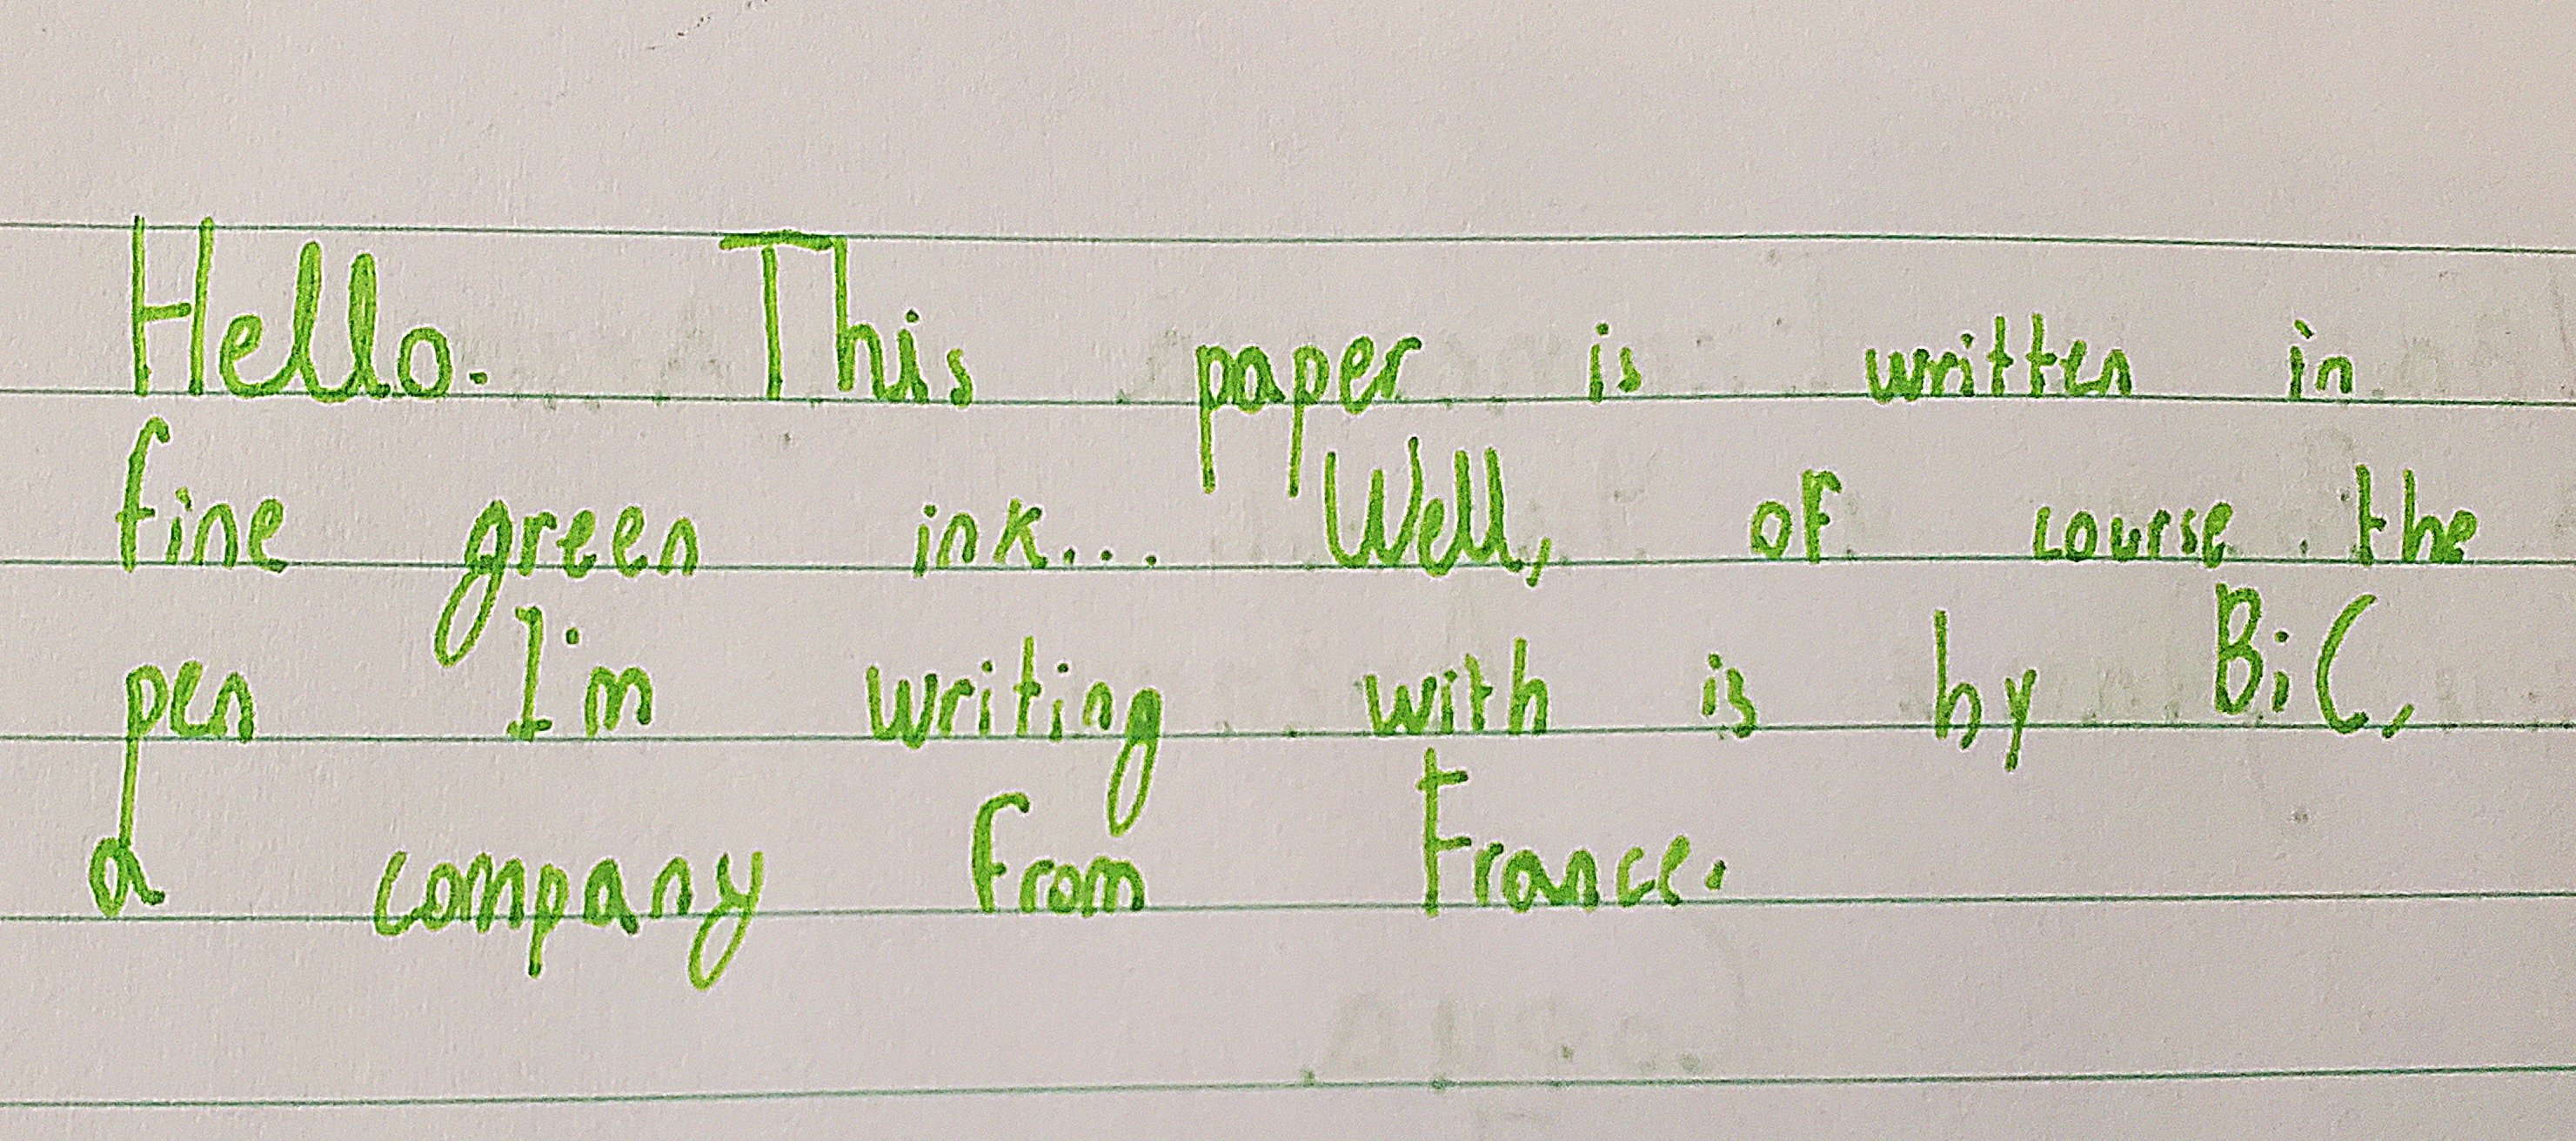 Hello. This paper is written in
fine green ink... Well, of course the
pen I'm writing with is by BiC,
a company from France.